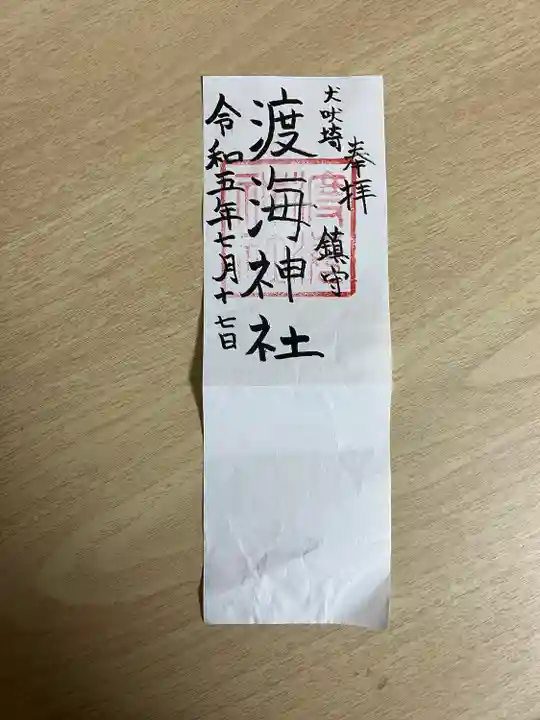 奉拝
犬吠埼
鎮守
渡海神社
令和五年七月十七日